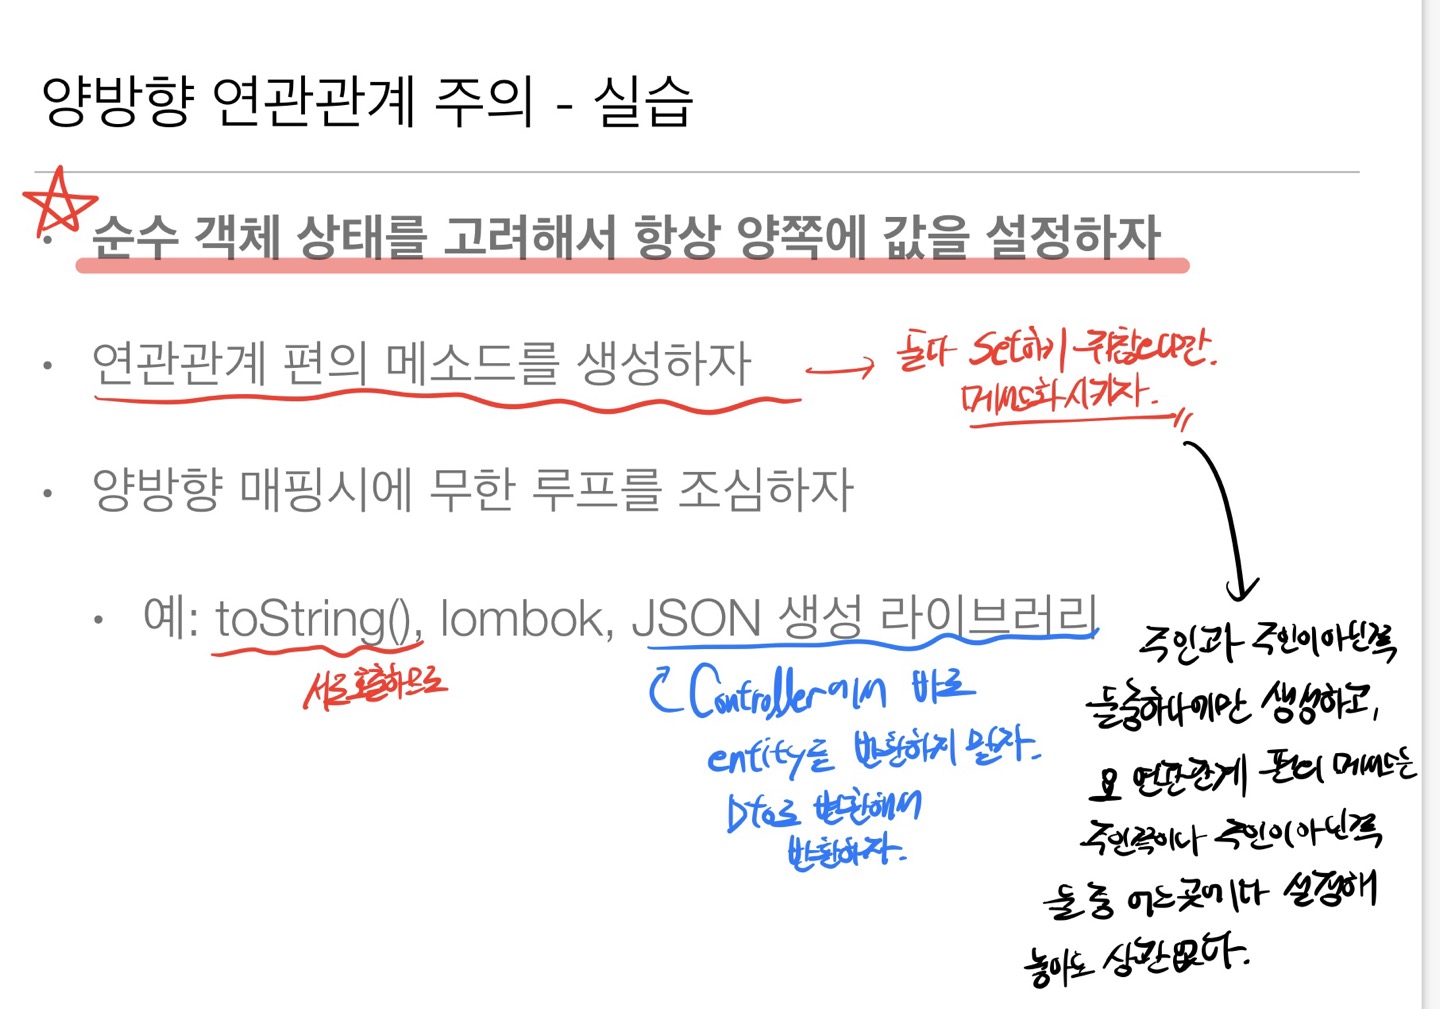 양방향 연관관계 주의 - 실습
• 순수 객체 상태를 고려해서 항상 양쪽에 값을 설정하자
• 연관관계 편의 메소드를 생성하자
→ 둘다 Set하기 귀찮으면
메서드화시키자.
• 양방향 매핑시에 무한 루프를 조심하자
• 예: toString(), lombok, JSON 생성 라이브러리
서로호출하므로
Controller에서 바로
entity를 반환하지 말자.
Dto로 변환해서
반환하자.
주인과 주인이아닌쪽
둘중하나에만 생성하고,
요 연관관계 편의 메서드는
주인쪽이나 주인이아닌쪽
둘 중 어느곳에다 설정해
놓아도 상관없다.